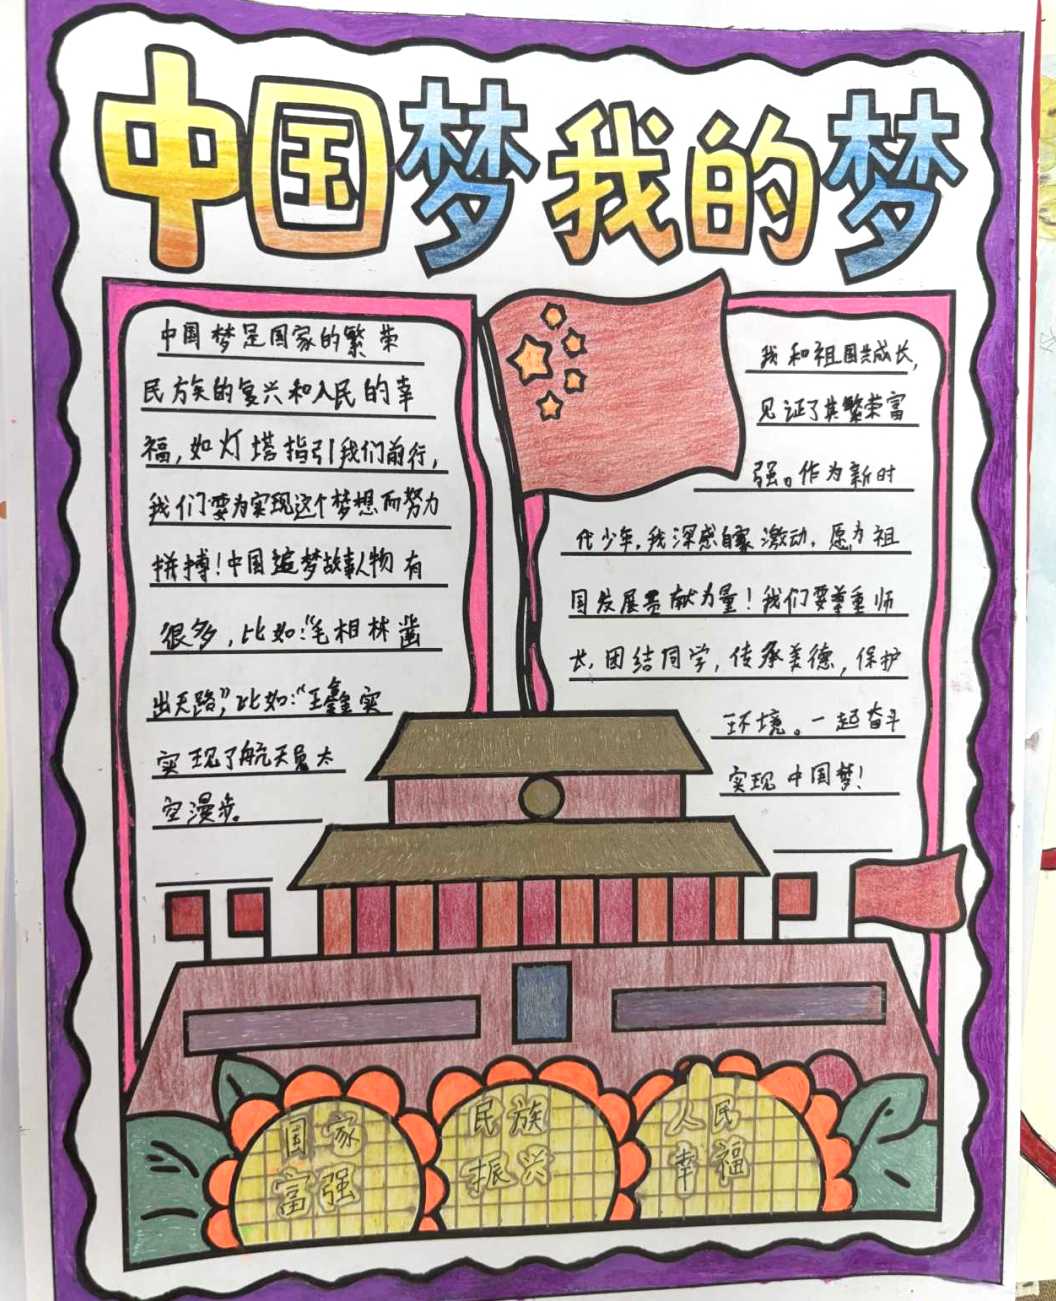 中国梦我的梦
中国梦是国家的繁荣
民族的复兴和人民的幸
福,如灯塔指引我们前行,
我们要为实现这个梦想而努力
拼搏!中国追梦故事人物有
很多,比如:“毛相林凿
出天路”,比如:“王鑫实
实现了航天员太
空漫步。
我和祖国共成长,
见证了其繁荣富
强。作为新时
代少年,我深感自豪激动,愿为祖
国发展贡献力量!我们要尊重师
长,团结同学,传承美德,保护
环境。一起奋斗
实现中国梦!
国家
富强
民族
振兴
人民
幸福